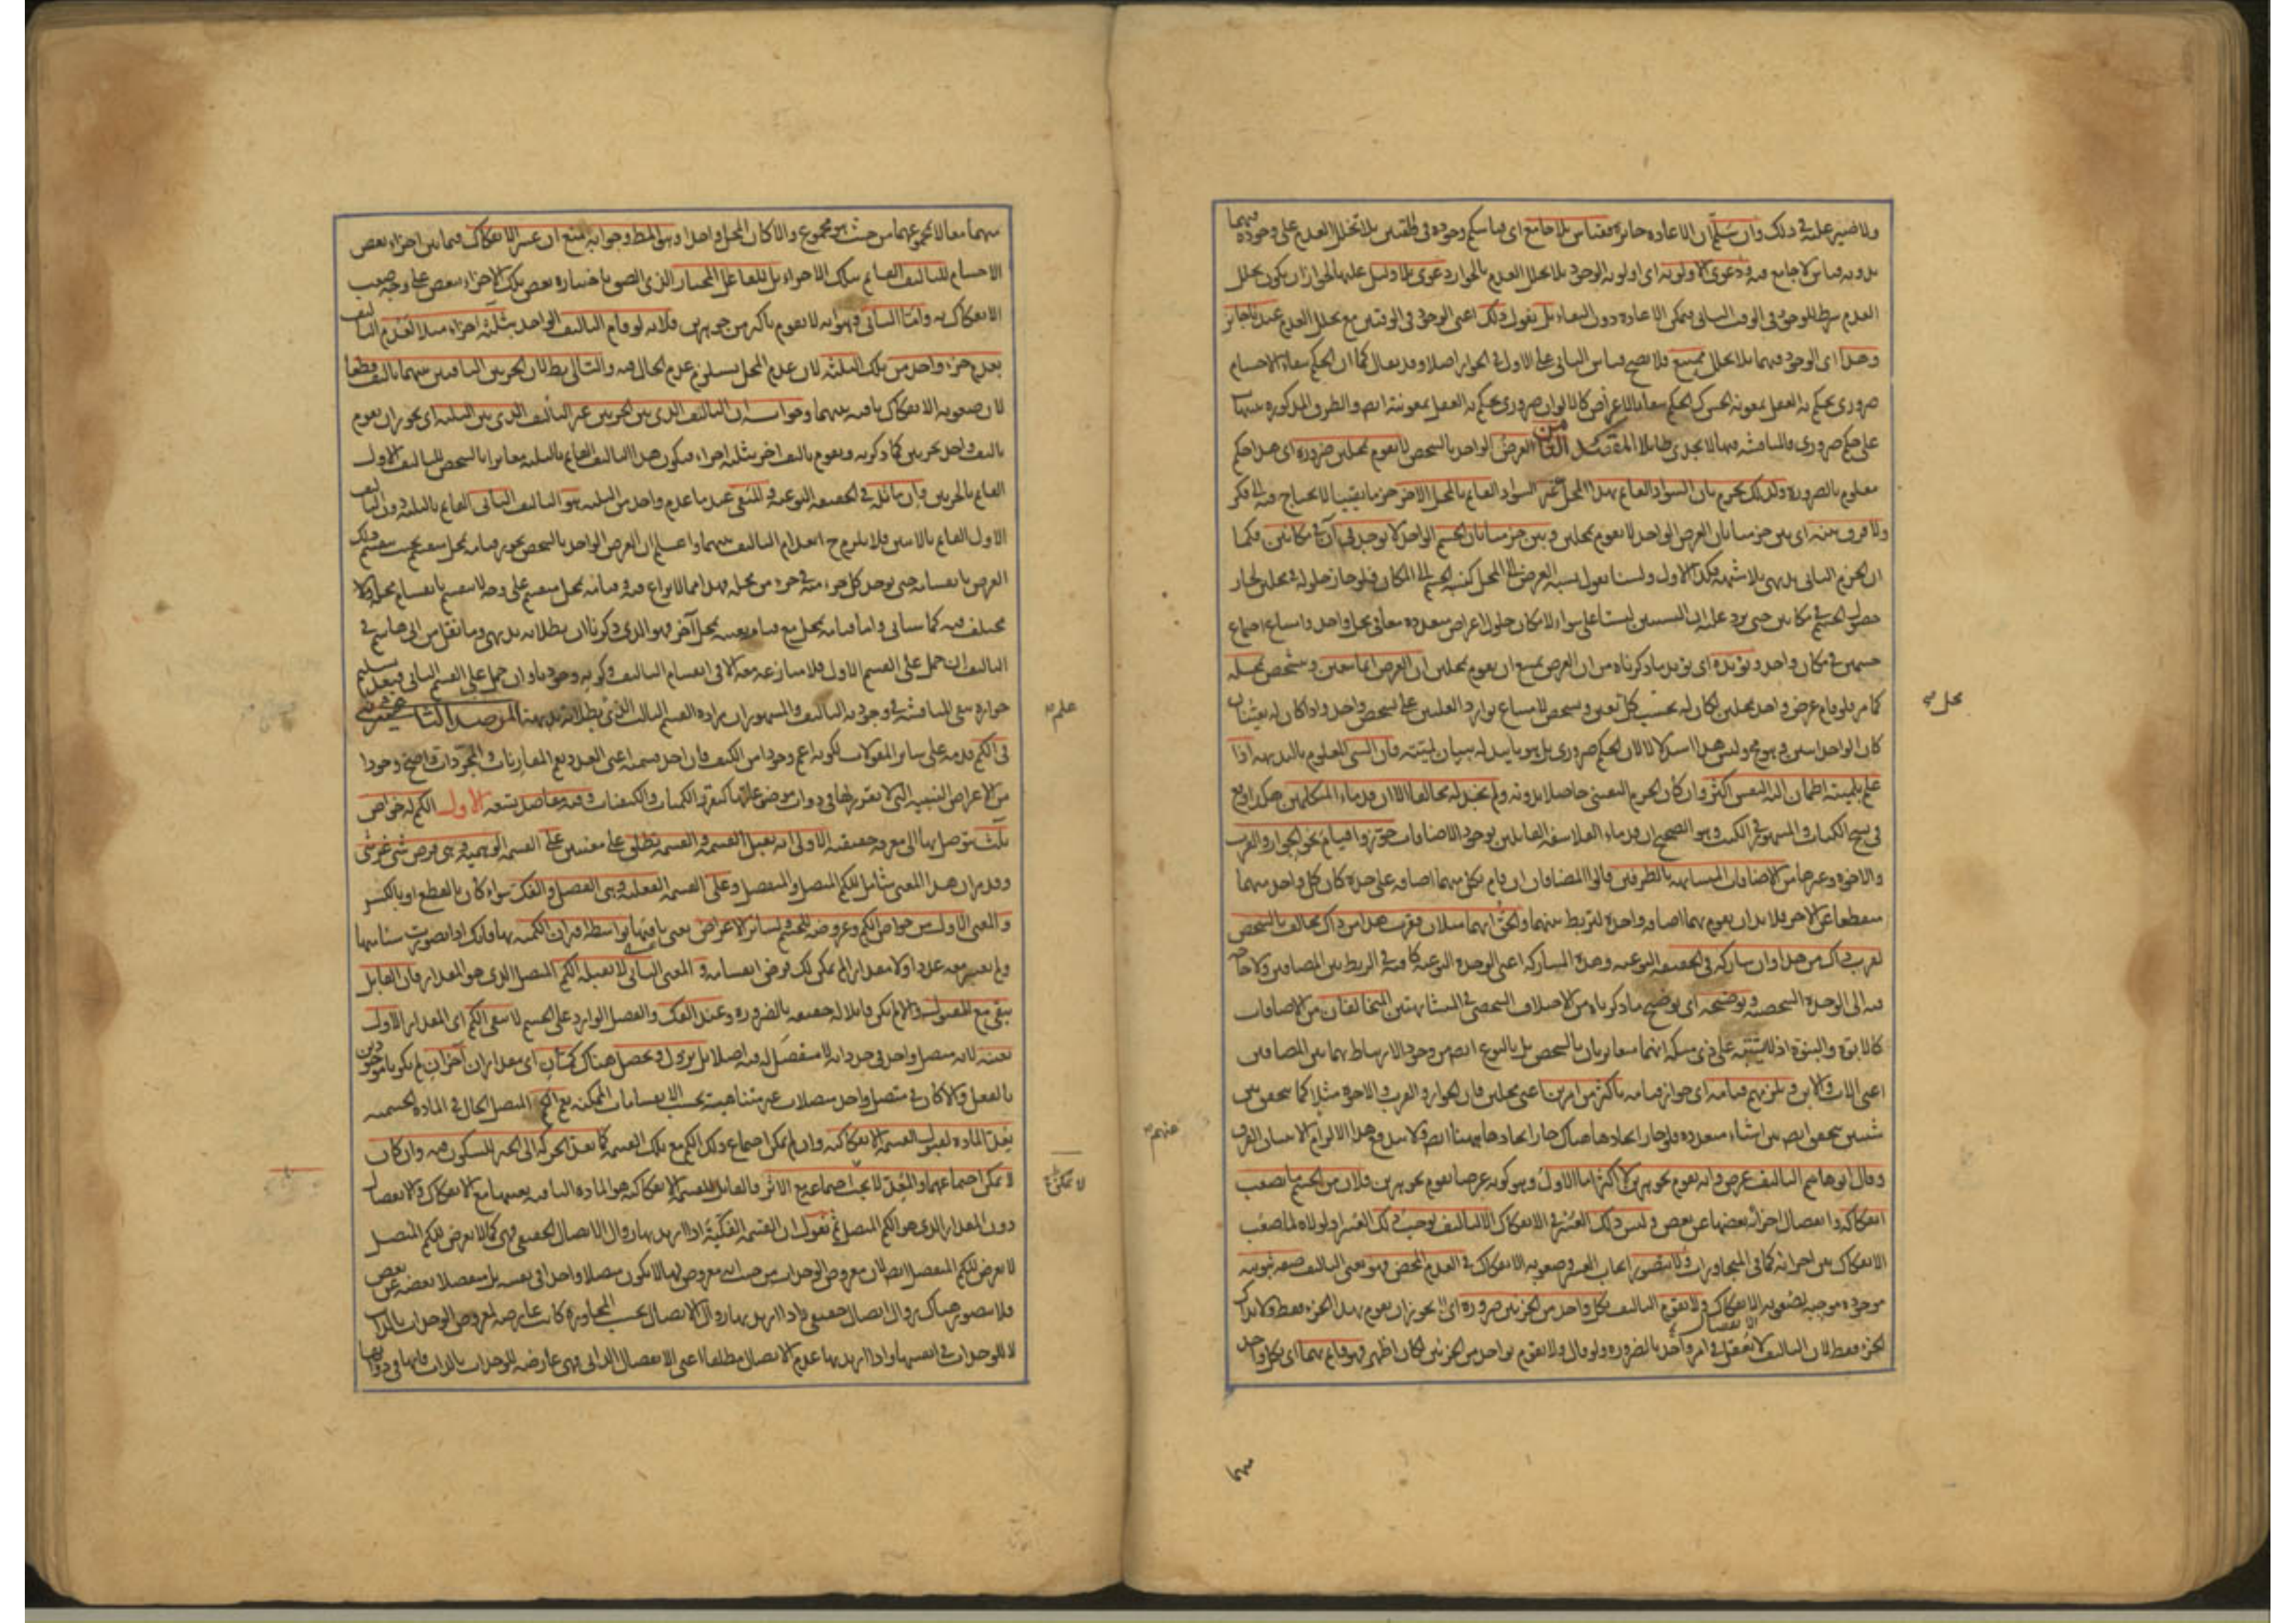 ولا ضير علينا في ذلك وان سلم ان الاعادة جائزة فقياس بلا جامع اى قياس حكم وجوده في وقتين بلا تخلل العدم على وجوده فيهما
بدونه قياس لا جامع فيه ودعوى الاولوية اى اولوية الوجود بلا تخلل العدم بالجواز دعوى بلا دليل عليها لجواز ان يكون تخلل
العدم شرطا للوجود في الوقت الثاني فيمكن الاعادة دون البقاء بل نقول ذلك اعنى الوجود في الوقتين مع تخلل العدم عندنا جائز
وهذا اى الوجود فيهما بلا تخلل ممتنع فلا يصح قياس الثاني على الاول في الجواز اصلا وقد يقال كما ان الحكم ببقاء الاجسام
ضروري يحكم به العقل بمعونة الحس كذلك الحكم ببقاء الاعراض كالالوان ضروري يحكم به العقل بمعونته ايضا والطرق المذكورة تنبيهات
على حكم ضروري والمناقشة فيها لا تجدي طائلا المقصد الثامن العرض الواحد بالشخص لا يقوم بمحلين ضرورة اى هذا حكم
معلوم بالضرورة ولذلك نجزم بان السواد القائم بهذا المحل غير السواد القائم بالمحل الاخر جزما يقينيا لا يحتاج فيه الى فكر
ولا فرق بينه اى بين جزمنا بان العرض الواحد لا يقوم بمحلين وبين جزمنا بان الجسم الواحد لا يوجد في آن في مكانين فكما
ان الجزم الثاني بديهى بلا شبهة فكذا الاول ولسنا نقول نسبة العرض الى المحل كنسبة الجسم الى المكان فلو جاز حلوله في محلين لجاز
حصول الجسم في مكانين حتى يرد عليه ان النسبتين ليستا على سواء لامكان حلول اعراض متعددة معا في محل واحد وامتناع اجتماع
جسمين في مكان واحد ويؤيده اى يؤيد ما ذكرناه من ان العرض يمتنع ان يقوم بمحلين ان العرض انما يتعين ويتشخص بمحله
كما مر فلو قام عرض واحد بمحلين لكان له بحسب كل تعين وتشخص لامتناع توارد العلتين على شخص واحد واذا كان له تعينان
كان الواحد اثنين وهو محال وليس هذا استدلالا لان الحكم ضروري بل هو تاييد له ببيان لميته فان الشى المعلوم بالبديهة اذا
علم بلميته اطمأن اليه النفس اكثر وان كان الجزم اليقيني حاصلا بدونه ولم نجد له مخالفا الا ان قدماء المتكلمين هكذا وقع
في نسخ الكتاب والمشهور في الكتب وهو الصحيح ان قدماء الفلاسفة القائلين بوجود الاضافات جوزوا قيام نحو الجوار والقرب
والاخوة وغيرها من الاضافات المتشابهة بالطرفين قالوا المضافان ان قام بكل منهما اضافة على حدة كان كل واحد منهما
منقطعا عن الاخر فلا بد ان يقوم بهما اضافة واحدة لتربط بينهما والحق انهما مثلان فقرب هذا من ذاك مخالف بالشخص
لقرب ذاك من هذا وان شاركه في الحقيقة النوعية وهذه المشاركة اعنى الوحدة النوعية كافية في الربط بين المضافين ولا حاجة
فيه الى الوحدة الشخصية ويوضحه اى يوضح ما ذكرناه من الاختلاف الشخصي في المتشابهتين المتخالفتان من الاضافات
كالابوة والبنوة اذ لا يشتبه على ذى مسكة انهما متغايرتان بالشخص بل بالنوع ايضا مع وجود الارتباط بهما بين المضافين
اعنى الاب والابن ويلزمهم قيامه اى جواز قيامه باكثر من امرين اعنى محلين فان الجوار والقرب والاخوة مثلا كما يتحقق بين
شيئين يتحقق ايضا بين اشياء متعددة فلو جاز اتحادها هناك جاز اتحادها ههنا ايضا
وقال ابو هاشم التاليف عرض وانه يقوم بجوهرين لا اكثر اما الاول وهو كونه عرضا يقوم بجوهرين فلان من الجسم ما يصعب
انفكاكه وانفصال اجزائه بعضها عن بعض وليس ذلك العسر في الانفكاك الا لتاليف يوجب ذلك العسر اذ لولاه لما صعب
الانفكاك بين اجزائه كما في المتجاورات ولا يتصور ايجاب العسر وصعوبة الانفكاك في العدم المحض فهو يعنى التاليف صفة ثبوتية
موجودة موجبة لصعوبة الانفكاك ولا يقوم التاليف بكل واحد من الجزئين ضرورة اى لا يجوز ان يقوم بهذا الجزء فقط ولا بذاك
الجزء فقط لان التاليف لا يعقل في امر واحد بالضرورة ولو قال ولا يقوم بواحد من الجزئين لكان اظهر فهو قائم بهما اى بكل واحد
منهما
محل
منهما معا لا بمجموعهما من حيث هو مجموع والا كان المحل واحدا وهو المط وجوابه منع ان عسر الانفكاك فيما بين اجزاء بعض
الاجسام للتاليف القائم بتلك الاجزاء بل للفاعل المختار الذى الصق باختياره بعض تلك الاجزاء ببعض على وجه يصعب
الانفكاك به واما الثاني وهو انه لا يقوم باكثر من جوهرين فلانه لو قام التاليف الواحد بثلثة اجزاء مثلا لعدم التاليف
بعدم جزء واحد من تلك الثلثة لان عدم المحل يستلزم عدم الحال فيه والتالى بط لان الجزئين الباقيين بينهما تاليف قطعا
لان صعوبة الانفكاك باقية بينهما وجوابه ان التاليف الذى بين الجزئين غير التاليف الذى بين الثلثة اى يجوز ان يقوم
تاليف واحد بجزئين كما ذكرته ويقوم تاليف اخر بثلثة اجزاء فيكون هذا التاليف القائم بالثلثة مغايرا بالشخص للتاليف الاول
القائم بالجزئين وان ماثله في الحقيقة النوعية والمنفى عند ما عدم واحد من الثلثة هو التاليف الثانى القائم بالثلثة دون التاليف
الاول القائم بالاثنين فلا يلزم ح انعدام التاليف بينهما واعلم ان العرض الواحد بالشخص يجوز قيامه بمحل منقسم بحيث ينقسم ذلك
العرض بانقسامه حتى يوجد كل جزء منه في جزء من محله فهذا مما لا نزاع فيه وقيامه بمحل منقسم على وجه لا ينقسم بانقسام محله
مختلف فيه كما سياتى واما قيامه بمحل مع قيامه بعينه بمحل آخر فهو الذى ذكرنا ان بطلانه بديهى وما نقل من ابى هاشم في
التاليف ان حمل على القسم الاول فلا منازعة معه الا في انقسام التاليف وكونه وجوديا وان حمل على القسم الثانى فبعد تسليم
جوازه تبقى المناقشة في وجودية التاليف والمشهور ان مراده القسم الثالث الذى بطلانه بديهة المرصد الثانى
في الكم قدمه على سائر المقولات لكونه اعم وجودا من الكيف فان احد قسميه اعنى العدد يعم المقارنات والمجردات واصح وجودا
من الاعراض النسبية التى لا تقرر لها في ذوات موضوعاتها كتقرر الكميات والكيفيات وفيه مقاصد تسعة الاول الكم له خواص
ثلث يتوصل بها الى معرفة حقيقته الاولى انه يقبل القسمة والقسمة تطلق على معنيين على القسمة الوهمية وهى فرض شى غير شى
وقد مر ان هذا المعنى شامل للكم المتصل والمنفصل وعلى القسمة الفعلية وهى الفصل والفك سواء كان بالقطع او بالكسر
والمعنى الاول من خواص الكم وعروضه للجسم ولسائر الاعراض يعنى باقيها بواسطة اقتران الكمية بها فانك اذا تصورت شيئا منها
ولم تعتبر معه عددا ولا مقدارا لم يمكن لك فرض انقسامه والمعنى الثانى لا يقبله الكم المتصل الذى هو المقدار فان القابل
يبقى مع المقبول والا لم يكن قابلا له حقيقة بالضرورة وعند الفك والفصل الوارد على الجسم لا يبقى الكم اى المقدار الاول
بعينه لانه متصل واحد في حد ذاته لا مفصل له فيه اصلا بل يزول ويحصل هناك كمان اى مقداران آخران لم يكونا موجودين
بالفعل والا كان في متصل واحد متصلات غير متناهية بحسب الانقسامات الممكنة نعم الكم المتصل الحال في المادة الجسمية
يعد المادة لقبول القسمة الانفكاكية وان لم يمكن اجتماع ذلك الكم مع تلك القسمة كما تعد الحركة الى الحيز للسكون فيه وان كان
لا يمكن اجتماعهما والمعد لا يجب اجتماعه مع الاثر فالقابل للقسمة الانفكاكية هو المادة الباقية بعينها مع الانفكاك والانفصال
دون المقدار الذى هو الكم المتصل ثم نقول ان القسمة الفكية اذا اريد بها زوال الاتصال الحقيقى فهى كما لا تعرض للكم المتصل
لا تعرض للكم المنفصل ايضا لان معروض الوحدات من حيث انه معروض لها لا يكون متصلا واحدا في نفسه بل منفصلا بعضه عن بعض
فلا يتصور هناك زوال اتصال حقيقى واذا اريد بها زوال الاتصال بحسب المجاورة كانت عارضة لمعروض الوحدات بالذات
لا للوحدات في انفسها واذا اريد بها عدم الاتصال مطلقا اعنى الانفصال الذاتى فهى عارضة للوحدات بالذات فانها في ذواتها
علم
لا يمكن